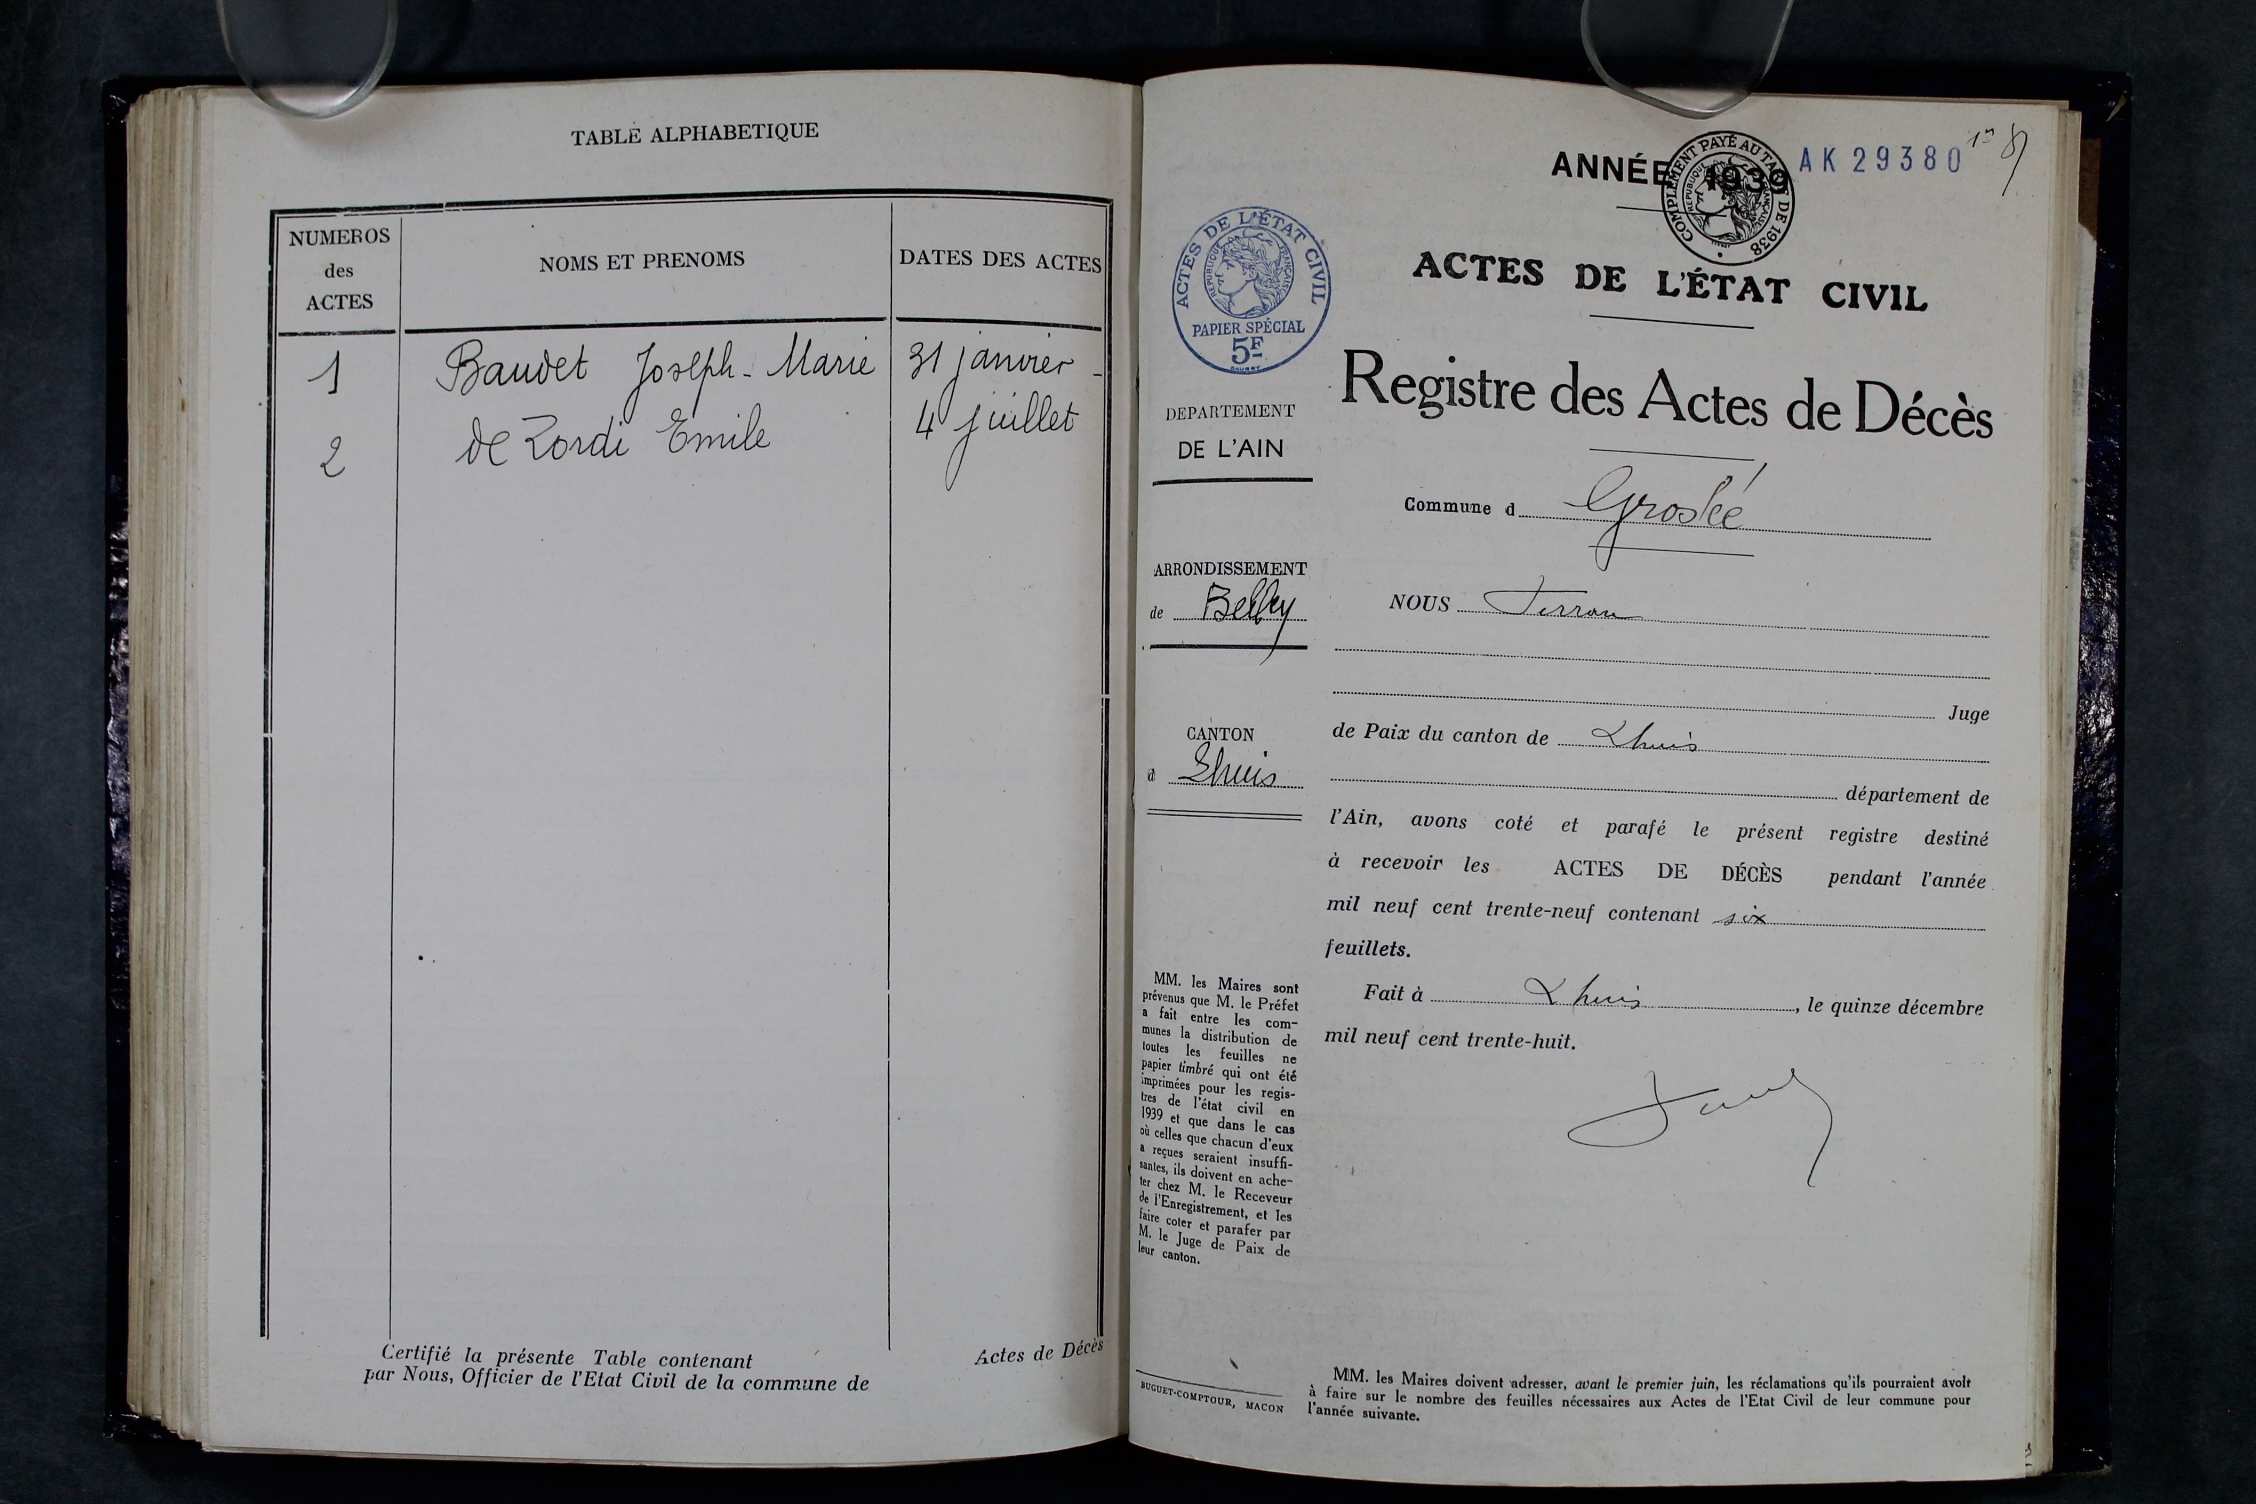 TABLE ALPHABETIQUE
NUMEROS
des
ACTES
NOMS ET PRENOMS
DATES DES ACTES
1 Baudet Joseph-Marie 31 janvier -
2 de Zordi Emile 4 juillet
Certifié la présente Table contenant Actes de Décès
par Nous, Officier de l'Etat Civil de la commune de
ANNÉE 1939
COMPLÉMENT PAYÉ AU TARIF DE 1938
RÉPUBLIQUE FRANÇAISE
AK 29380
ACTES DE L'ÉTAT CIVIL
RÉPUBLIQUE FRANÇAISE
PAPIER SPÉCIAL
5F
DEPARTEMENT
DE L'AIN
ARRONDISSEMENT
de Belley
CANTON
d Lhuis
MM. les Maires sont
prévenus que M. le Préfet
a fait entre les com-
munes la distribution de
toutes les feuilles ne
papier timbré qui ont été
imprimées pour les regis-
tres de l'état civil en
1939 et que dans le cas
où celles que chacun d'eux
a reçues seraient insuffi-
santes, ils doivent en ache-
ter chez M. le Receveur
de l'Enregistrement, et les
faire coter et parafer par
M. le Juge de Paix de
leur canton.
BUGUET-COMPTOUR, MACON
ACTES DE L'ÉTAT CIVIL
Registre des Actes de Décès
Commune d Groslée
NOUS
Juge
de Paix du canton de Lhuis
département de
l'Ain, avons coté et parafé le présent registre destiné
à recevoir les ACTES DE DÉCÈS pendant l'année
mil neuf cent trente-neuf contenant six
feuillets.
Fait à Lhuis, le quinze décembre
mil neuf cent trente-huit.
MM. les Maires doivent adresser, avant le premier juin, les réclamations qu'ils pourraient avoir
à faire sur le nombre des feuilles nécessaires aux Actes de l'Etat Civil de leur commune pour
l'année suivante.